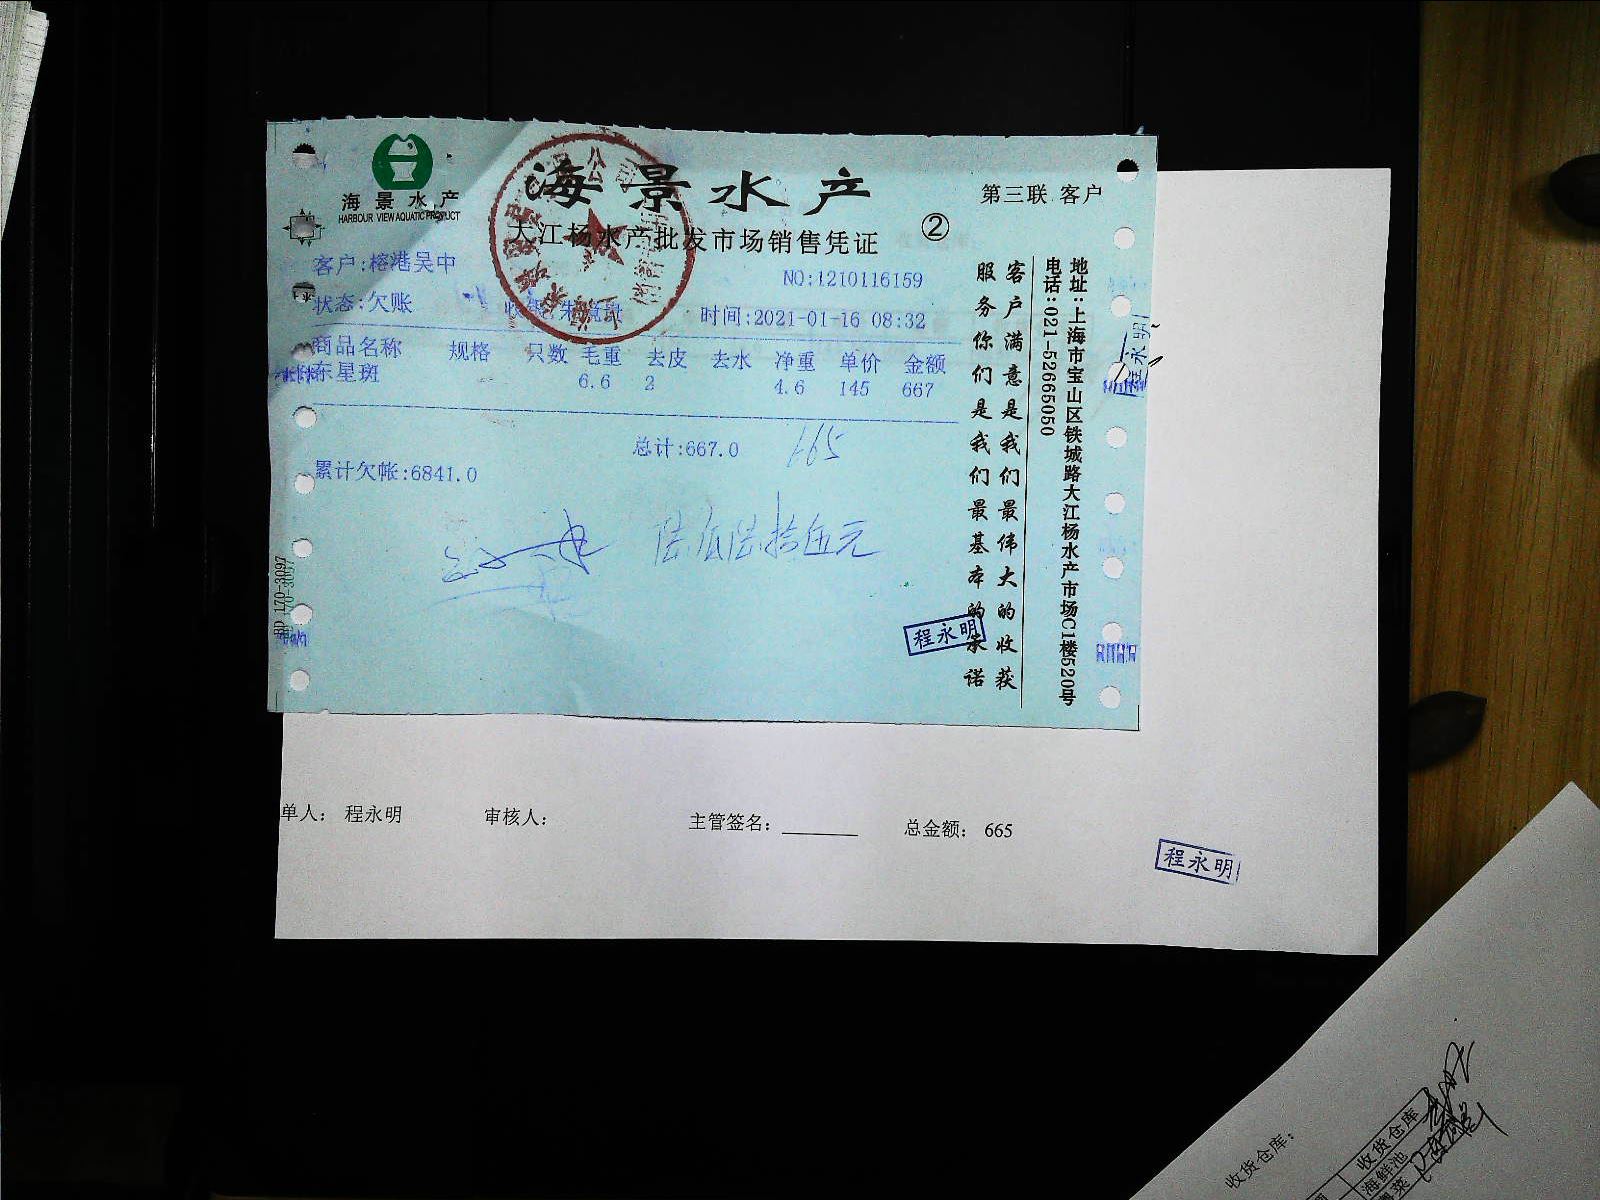 海景水产
HARBOUR VIEW AQUATIC PRODUCT
海景水产
第三联 客户
大江杨水产批发市场销售凭证 ②
客户:榕港吴中
NO:1210116159
状态:欠账
时间:2021-01-16 08:32
商品名称 规格 只数 毛重 去皮 去水 净重 单价 金额
东星斑 6.6 2 4.6 145 667
总计:667.0 665
累计欠帐:6841.0
陆佰陆拾伍元
程永明
客户满意是我们最伟大的收获
服务你们是我们最基本的承诺
地址:上海市宝山区铁城路大江杨水产市场C1楼520号
电话:021-52665050
程永明
170-3097
单人: 程永明 审核人: 主管签名: 总金额: 665
程永明
收货仓库:
收货仓库
海鲜池